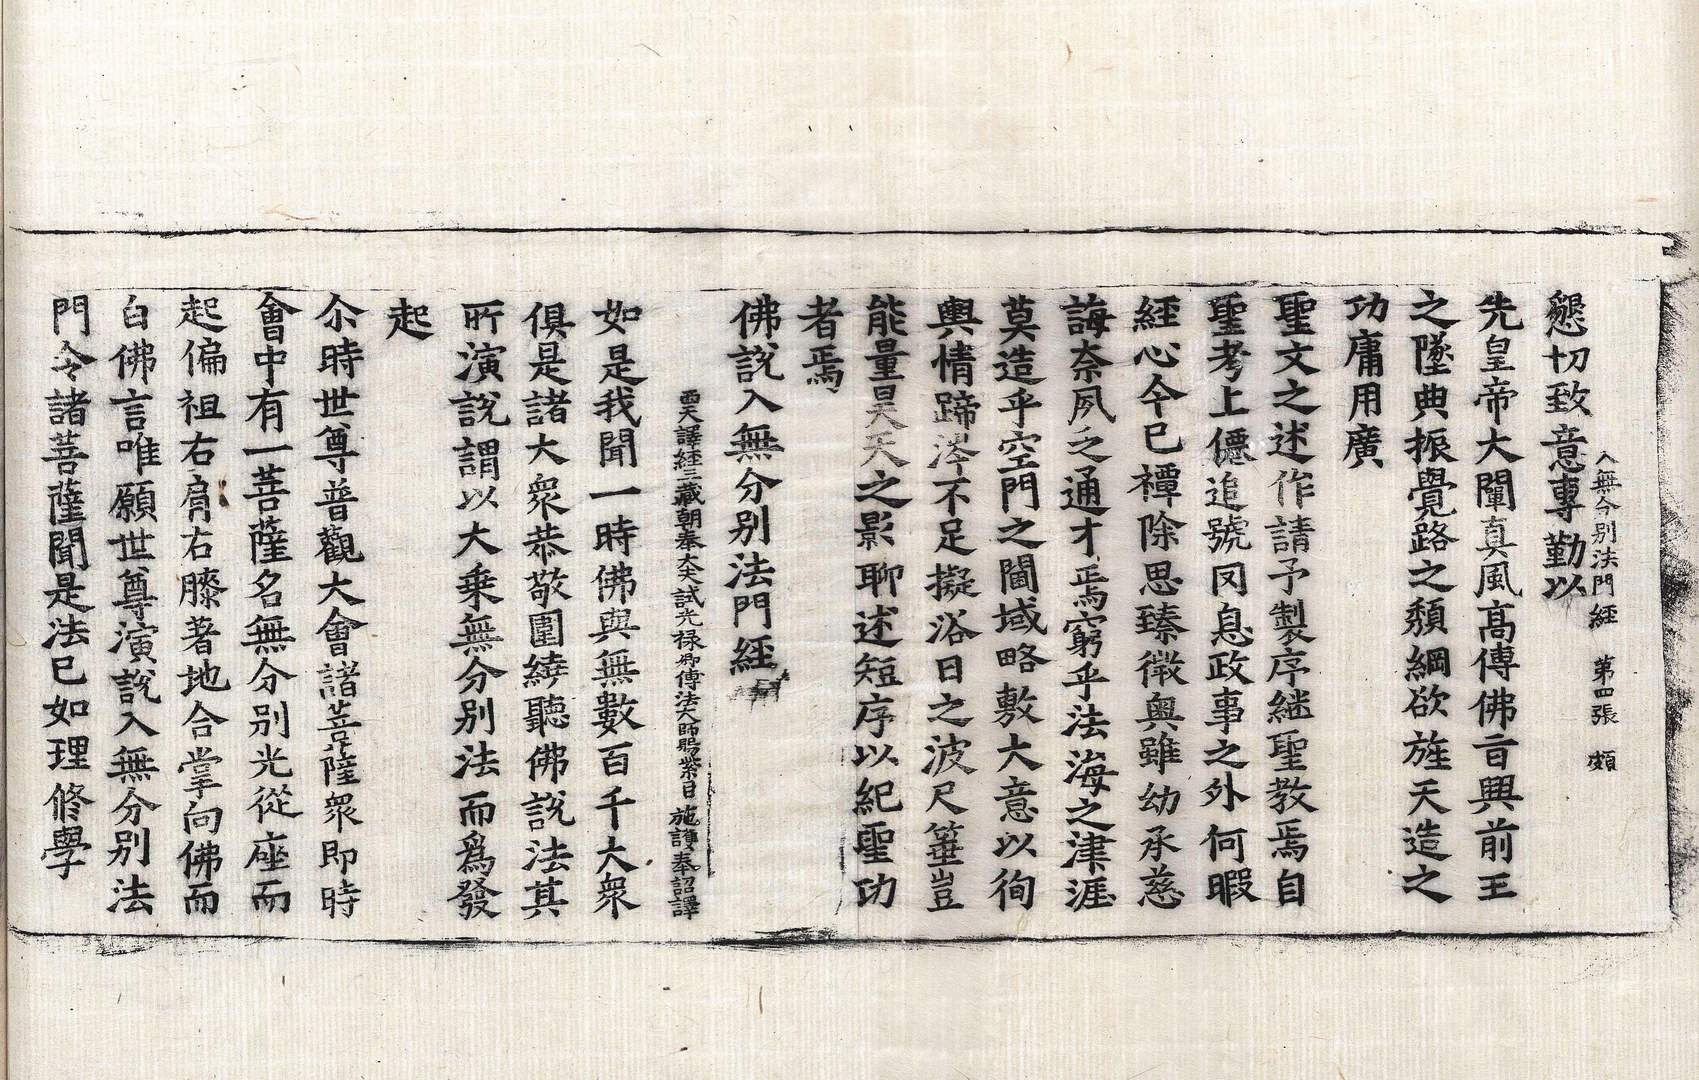 入無分別法門經 第四張 頗
懇切致意專勤以
先皇帝大闡真風高傳佛旨興前王
之墜典振覺路之頹綱欲旌天造之
功庸用廣
聖文之述作請予製序繼聖教焉自
聖考上僊追號罔息政事之外何暇
經心今已禫除思臻徵奧雖幼承慈
誨奈夙乏通才焉窮乎法海之津涯
莫造乎空門之閫域略敷大意以徇
輿情蹄涔不足擬浴日之波尺箠豈
能量昊天之影聊述短序以紀聖功
者焉
佛說入無分別法門經
西天譯經三藏朝奉大夫試光祿卿傳法大師賜紫臣 施護奉詔譯
如是我聞一時佛與無數百千大衆
俱是諸大衆恭敬圍繞聽佛說法其
所演說謂以大乘無分別法而爲發
起
尒時世尊普觀大會諸菩薩衆即時
會中有一菩薩名無分別光從座而
起偏袒右肩右膝著地合掌向佛而
白佛言唯願世尊演說入無分別法
門令諸菩薩聞是法已如理修學